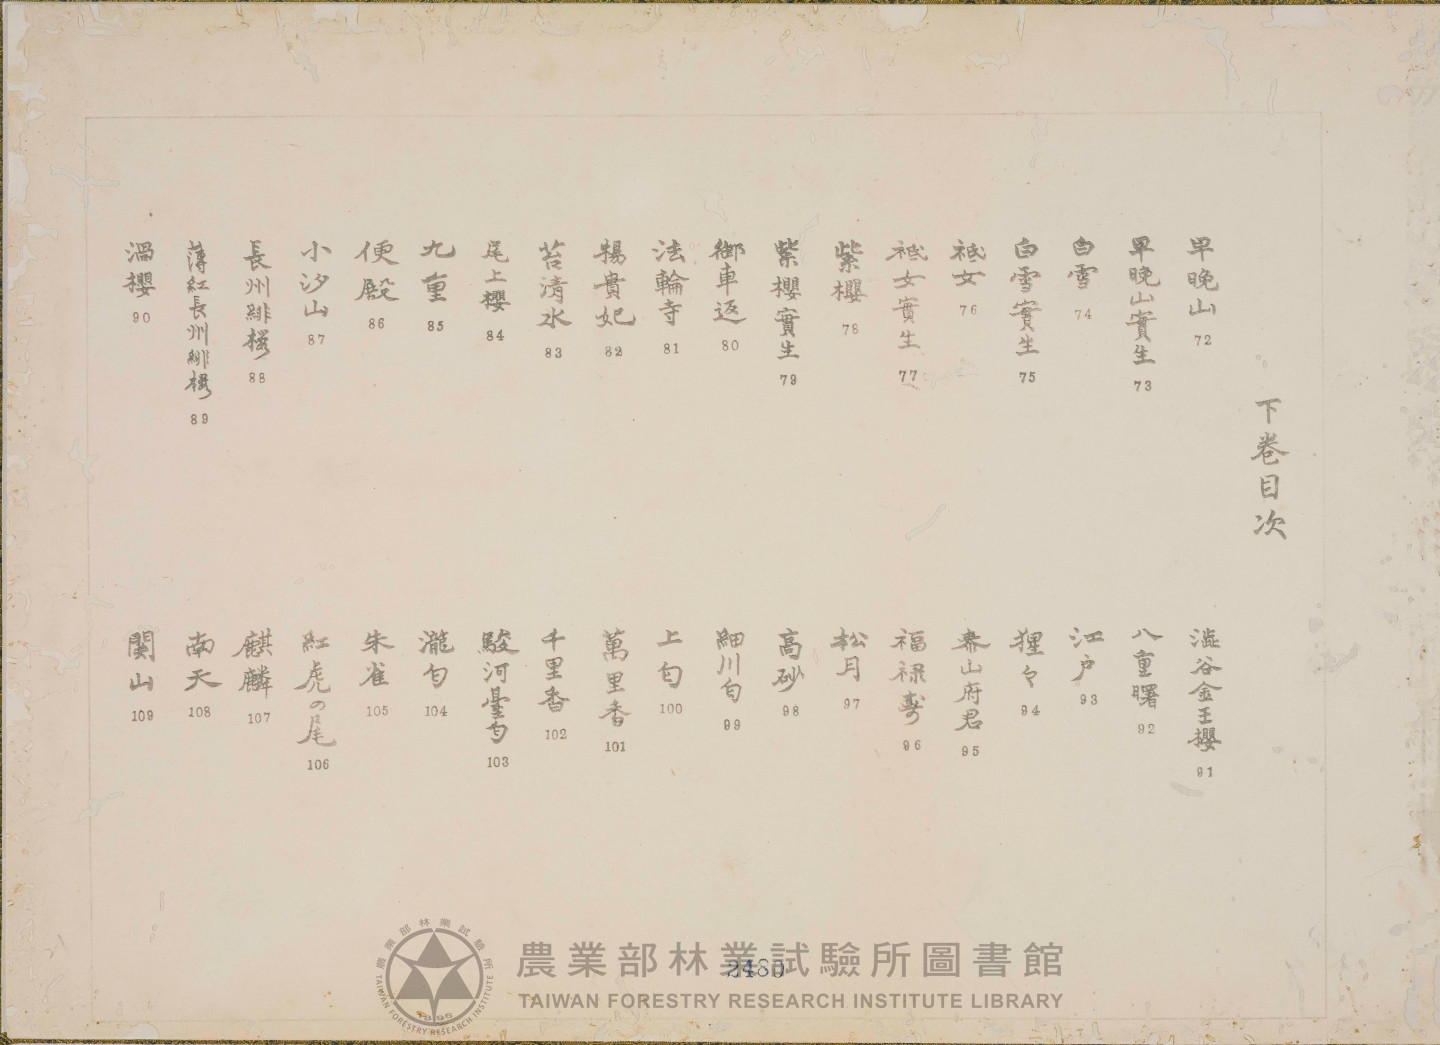 下卷目次
早晚山 72
早晚山實生 73
白雪 74
白雪實生 75
祗女 76
祗女實生 77
紫櫻 78
紫櫻實生 79
御車返 80
法輪寺 81
楊貴妃 82
苔清水 83
尾上櫻 84
九重 85
便殿 86
小汐山 87
長州緋櫻 88
薄紅長州緋櫻 89
渦櫻 90
澁谷金王櫻 91
八重曙 92
江戶 93
狸々 94
泰山府君 95
福禄壽 96
松月 97
高砂 98
細川匂 99
上匂 100
萬里香 101
千里香 102
駿河臺匂 103
瀧匂 104
朱雀 105
紅虎の尾 106
麒麟 107
南天 108
關山 109
2480
農業部林業試驗所圖書館
TAIWAN FORESTRY RESEARCH INSTITUTE LIBRARY
農業部林業試驗所
TAIWAN FORESTRY RESEARCH INSTITUTE
1895